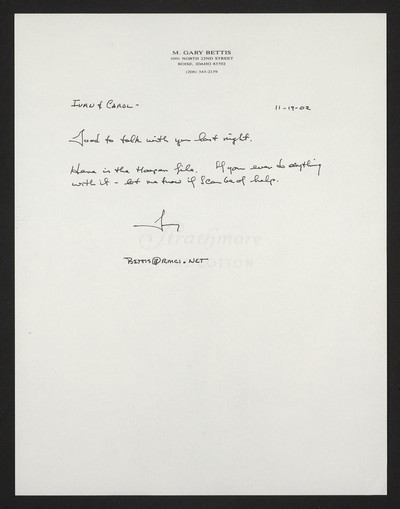 M. GARY BETTIS
NORTH 22ND STREET
BOISE, IDAHO 83702
(208) 343-2179
IVAN & CAROL - 11-19-02
Good to talk with you last night.
Here is the file. If you ever do anything
with it - let me know if I can be of help.
Strathmore
BETTIS@RMCI.NET